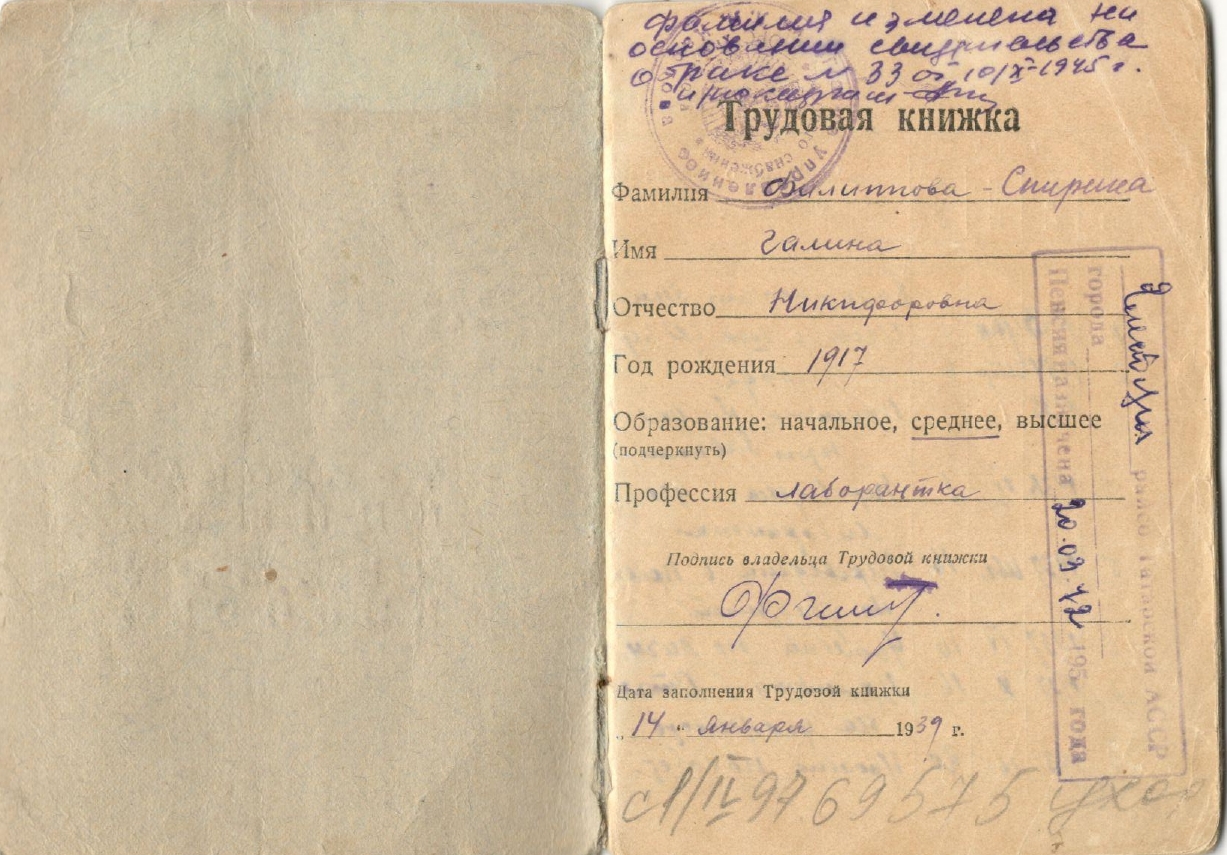 фамилия изменена на
основании свидетельства
о браке № 33 от 10/X-1945 г.
Трудовая книжка
Фамилия Филиппова - Спирина
Имя Галина
Отчество Никифоровна
Год рождения 1917
Образование: начальное, среднее, высшее
(подчеркнуть)
Профессия лаборантка
Подпись владельца Трудовой книжки
Дата заполнения Трудовой книжки
„14 “ января 1939 г.
с 1/IV 97 69575 уход
райсо Татарской АССР
города
Пенсия назначена 20.09.72 195 года